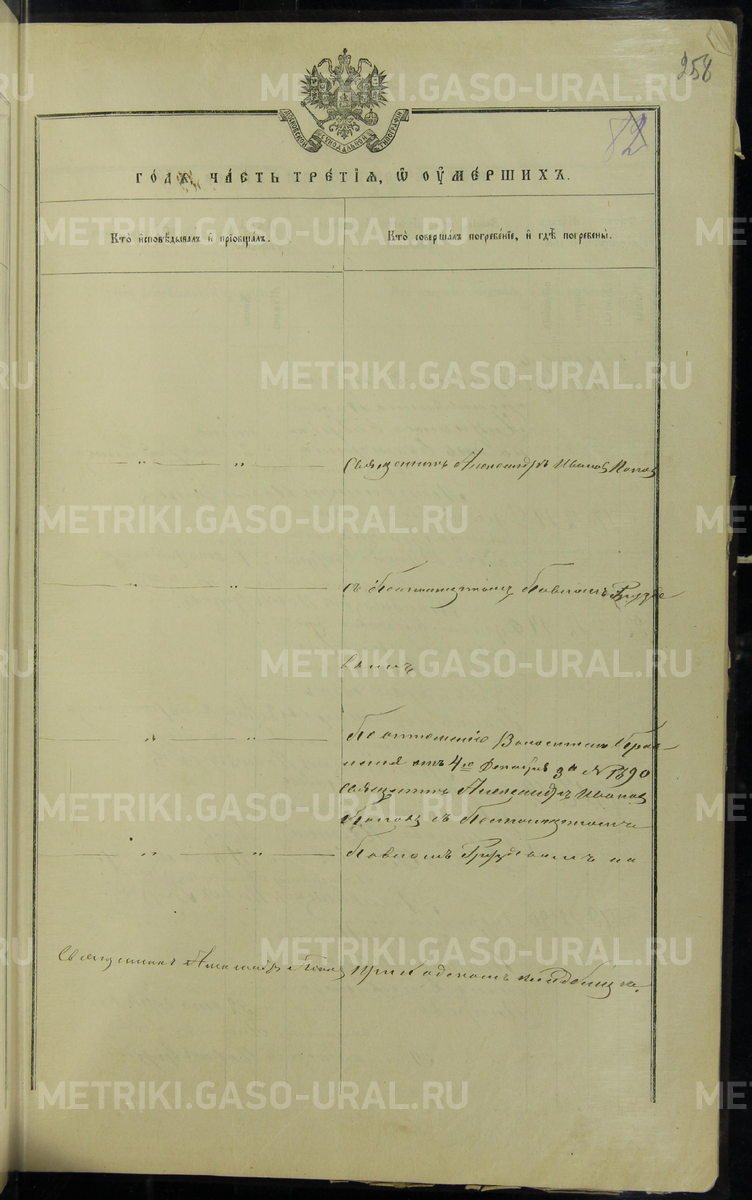 258
82
МОСКОВСКОЙ СѴНОДАЛЬНОЙ ТИПОГРАФІИ
ГО́ДА, ЧА́СТЬ ТРЕ́ТІѦ, Ѡ ОУ҆МЕ́РШИХЪ.
Кто̀ и҆сповѣ́дывалъ и҆ прїѻбща́лъ.
Кто̀ соверша́лъ погребе́нїе, и҆ гдѣ̀ погребены̀.
— " — " — Священникъ Александръ Иванов Попов
— " — " — съ Псаломщикомъ Павломъ
вымъ
— " — " — По отношенію Волостнаго Прав-
ленія отъ 4го Декабря за № 1890
священникъ Александръ Иванов
Попов съ Псаломщикомъ
— " — " — Павломъ на
Священник Александр Попов приходском кладбище.
METRIKI.GASO-URAL.RU